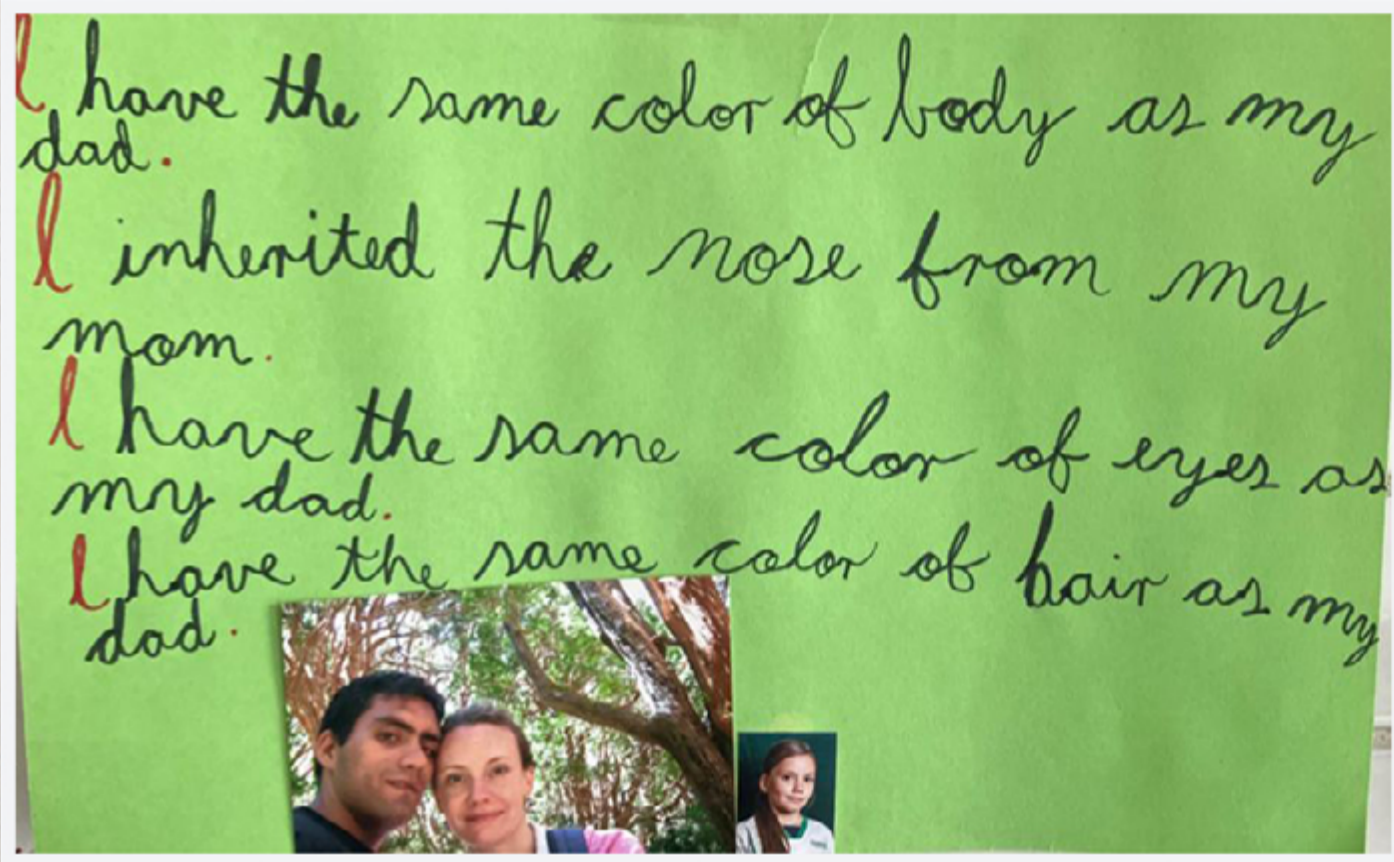 I have the same color of body as my
dad.
I inherited the nose from my
mom.
I have the same color of eyes as
my dad.
I have the same color of hair as my
dad.